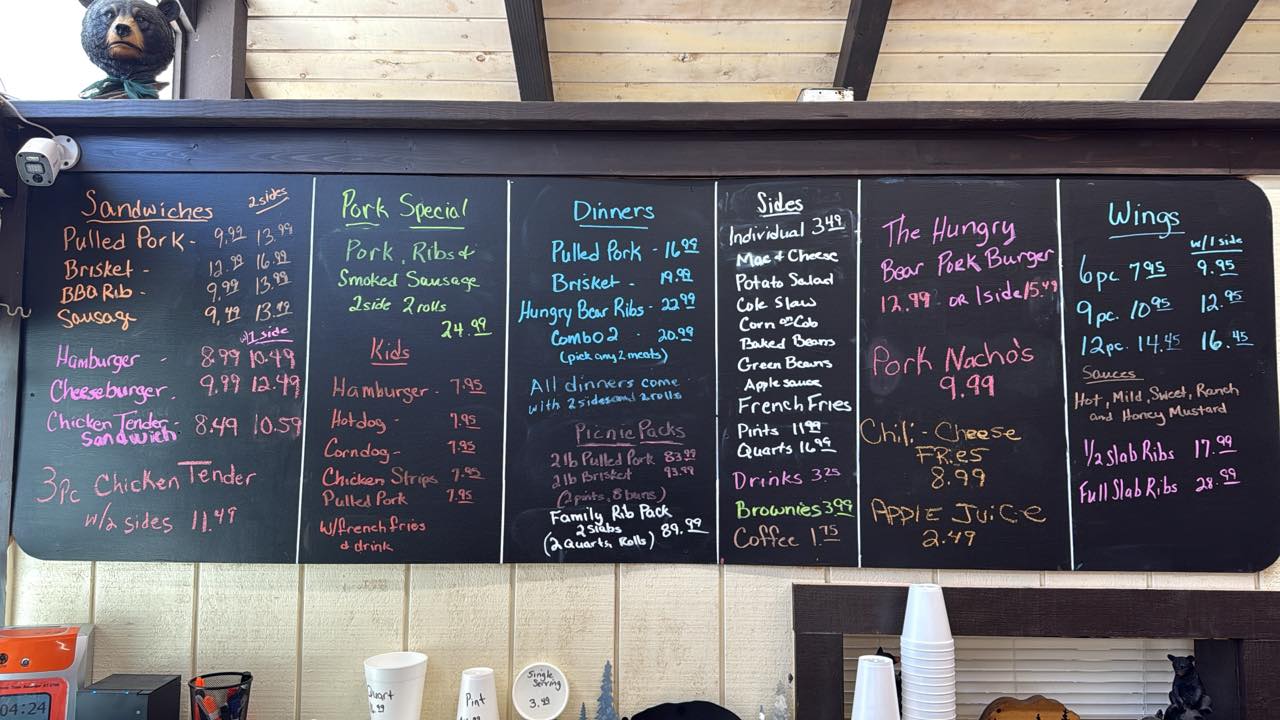 Sandwiches 2 sides
Pulled Pork - 9.99 13.99
Brisket - 12.99 16.99
BBQ Rib - 9.99 13.99
Sausage 9.49 13.49
w/1 side
Hamburger - 8.99 10.49
Cheeseburger - 9.99 12.49
Chicken Tender - 8.49 10.59
Sandwich
3pc Chicken Tender
w/2 sides 11.49
Pork Special
Pork, Ribs &
Smoked Sausage
2 side 2 rolls
24.99
Kids
Hamburger - 7.95
Hotdog - 7.95
Corndog - 7.95
Chicken Strips 7.95
Pulled Pork 7.95
w/french fries
& drink
Dinners
Pulled Pork - 16.99
Brisket - 19.99
Hungry Bear Ribs - 22.99
Combo 2 - 20.99
(pick any 2 meats)
All dinners come
with 2 sides and 2 rolls
Picnic Packs
2 lb Pulled Pork 83.99
2 lb Brisket 93.99
(2 pints, 8 buns)
Family Rib Pack
2 slabs
(2 Quarts, Rolls) 89.99
Sides
Individual 3.49
Mac & Cheese
Potato Salad
Cole Slaw
Corn on Cob
Baked Beans
Green Beans
Apple sauce
French Fries
Pints 11.99
Quarts 16.99
Drinks 3.25
Brownies 3.99
Coffee 1.75
The Hungry
Bear Pork Burger
12.99 or 1 side 15.49
Pork Nacho's
9.99
Chili-Cheese
Fries
8.99
Apple Juice
2.49
Wings
w/1 side
6pc 7.95 9.95
9pc. 10.95 12.95
12pc. 14.45 16.45
Sauces
Hot, Mild, Sweet, Ranch
and Honey Mustard
1/2 Slab Ribs 17.99
Full Slab Ribs 28.99
04:24
Quart
Pint
Single
Serving
3.49